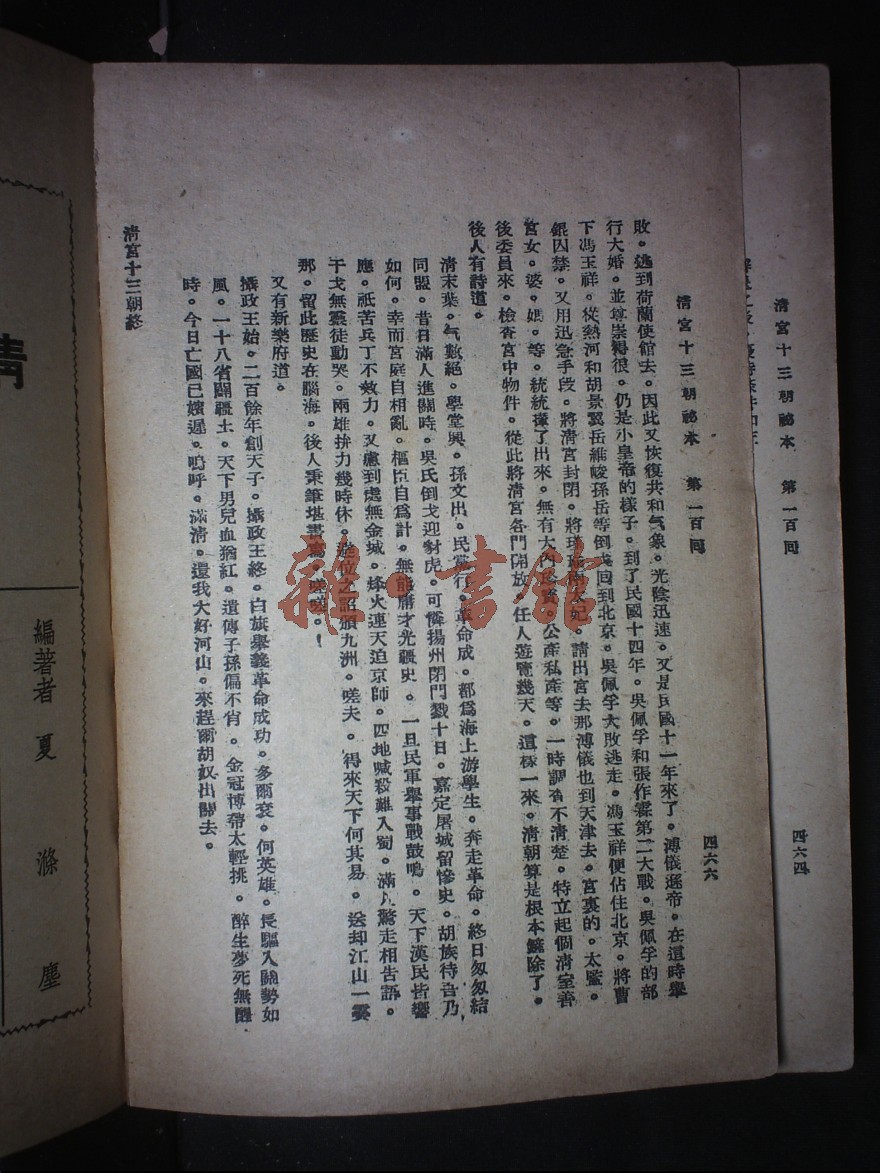 清宮十三朝祕本　第一百回
四六四
清宮十三朝祕本　第一百回
四六六
敗。逃到荷蘭使館去。因此又恢復共和气象。光陰迅速。又是民國十一年來了。溥儀遜帝。在這時舉
行大婚。並尊崇得很。仍是小皇帝的樣子。到了民國十四年。吳佩孚和張作霖第二大戰。吳佩孚的部
下馮玉祥。從熱河和胡景翼岳維峻孫岳等倒戈回到北京。吳佩孚大敗逃走。馮玉祥便佔住北京。將曹
錕囚禁。又用迅急手段。將淸宮封閉。將瑾瑜兩太妃。請出宮去那溥儀也到天津去。宮裏的。太監。
宮女。婆。媽。等。統統攆了出來。無有大內珍寶。公產私產等。一時調查不淸楚。特立起個淸室善
後委員來。檢查宮中物件。從此將淸宮各門開放。任人遊覽幾天。這樣一來。淸朝算是根本鏟除了。
後人有詩道。
淸末葉。气數絕。學堂興。孫文出。民黨行。革命成。都爲海上游學生。奔走革命。終日匆匆結
同盟。昔日滿人進關時。吳氏倒戈迎豺虎。可憐揚州閉門戮十日。嘉定屠城留慘史。胡族待吾乃
如何。幸而宮庭自相亂。樞臣自爲計。無能庸才光疆史。一旦民軍舉事戰鼓鳴。天下漢民皆響
應。祇苦兵丁不效力。又慮到處無金城。烽火連天迫京師。四地喊殺難入蜀。滿人驚走相告語。
干戈無靈徒動哭。兩雄拚力幾時休。遜位之詔頒九洲。嗟夫。得來天下何其易。送却江山一霎
那。留此歷史在腦海。後人秉筆堪書寫。嗟嗟。！
又有新樂府道。
攝政王始。二百餘年創天子。攝政王終。白旗舉義革命成功。多爾袞。何英雄。長驅入關勢如
風。一十八省闢疆土。天下男兒血猶紅。遺傳子孫偏不肖。金冠博帶太輕挑。醉生夢死無醒
時。今日亡國已嫌遲。嗚呼。滿淸。還我大好河山。來趕爾胡奴出關去。
淸宮十三朝終
淸
編著者　夏　滌　塵
雜·書館